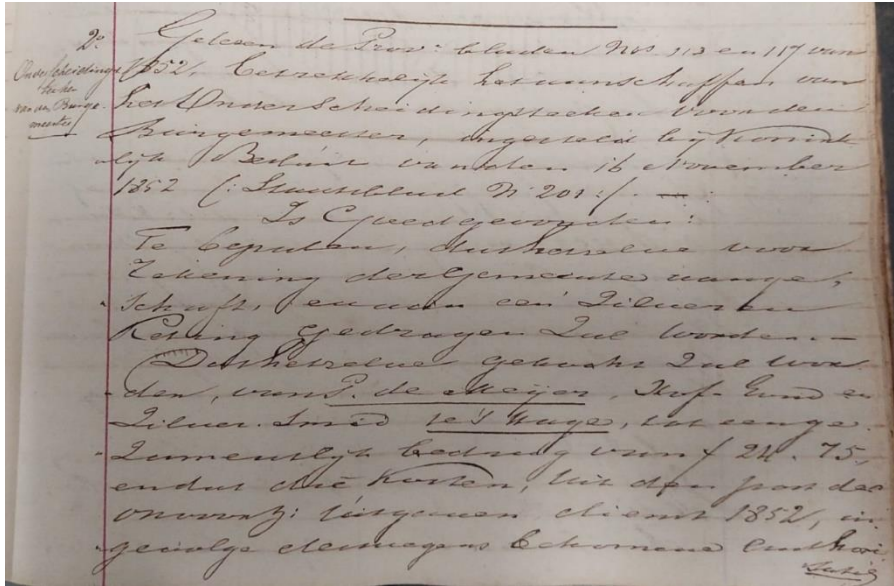 2o
Onderscheidings
teeken
van den Burge
meester
Gelezen de Prov: bladen Nos 113 en 117 van
1852, betrekkelijk het aanschaffen van
het Onderscheidingsteeken voor den
Burgemeester, ingesteld bij Konink
lijk Besluit van den 16 November
1852 (: Staatsblad No 201 :).
Is Goedgevonden:
Te bepalen, dat hetzelve voor
Rekening der Gemeente aange,
schaft, en aan een Zilveren
Ketting gedragen zal worden.
Dat hetzelve gekocht zal wor-
den, van P. de Meijer, Hof- Goud en
Zilver Smid te 's Hage, tot eenge-
zamentlijk bedrag van f 24.75,
en dat die kosten, uit den post der
onvoorz: uitgaven dienst 1852, in
gevolge deswegens bekomene authori
satie